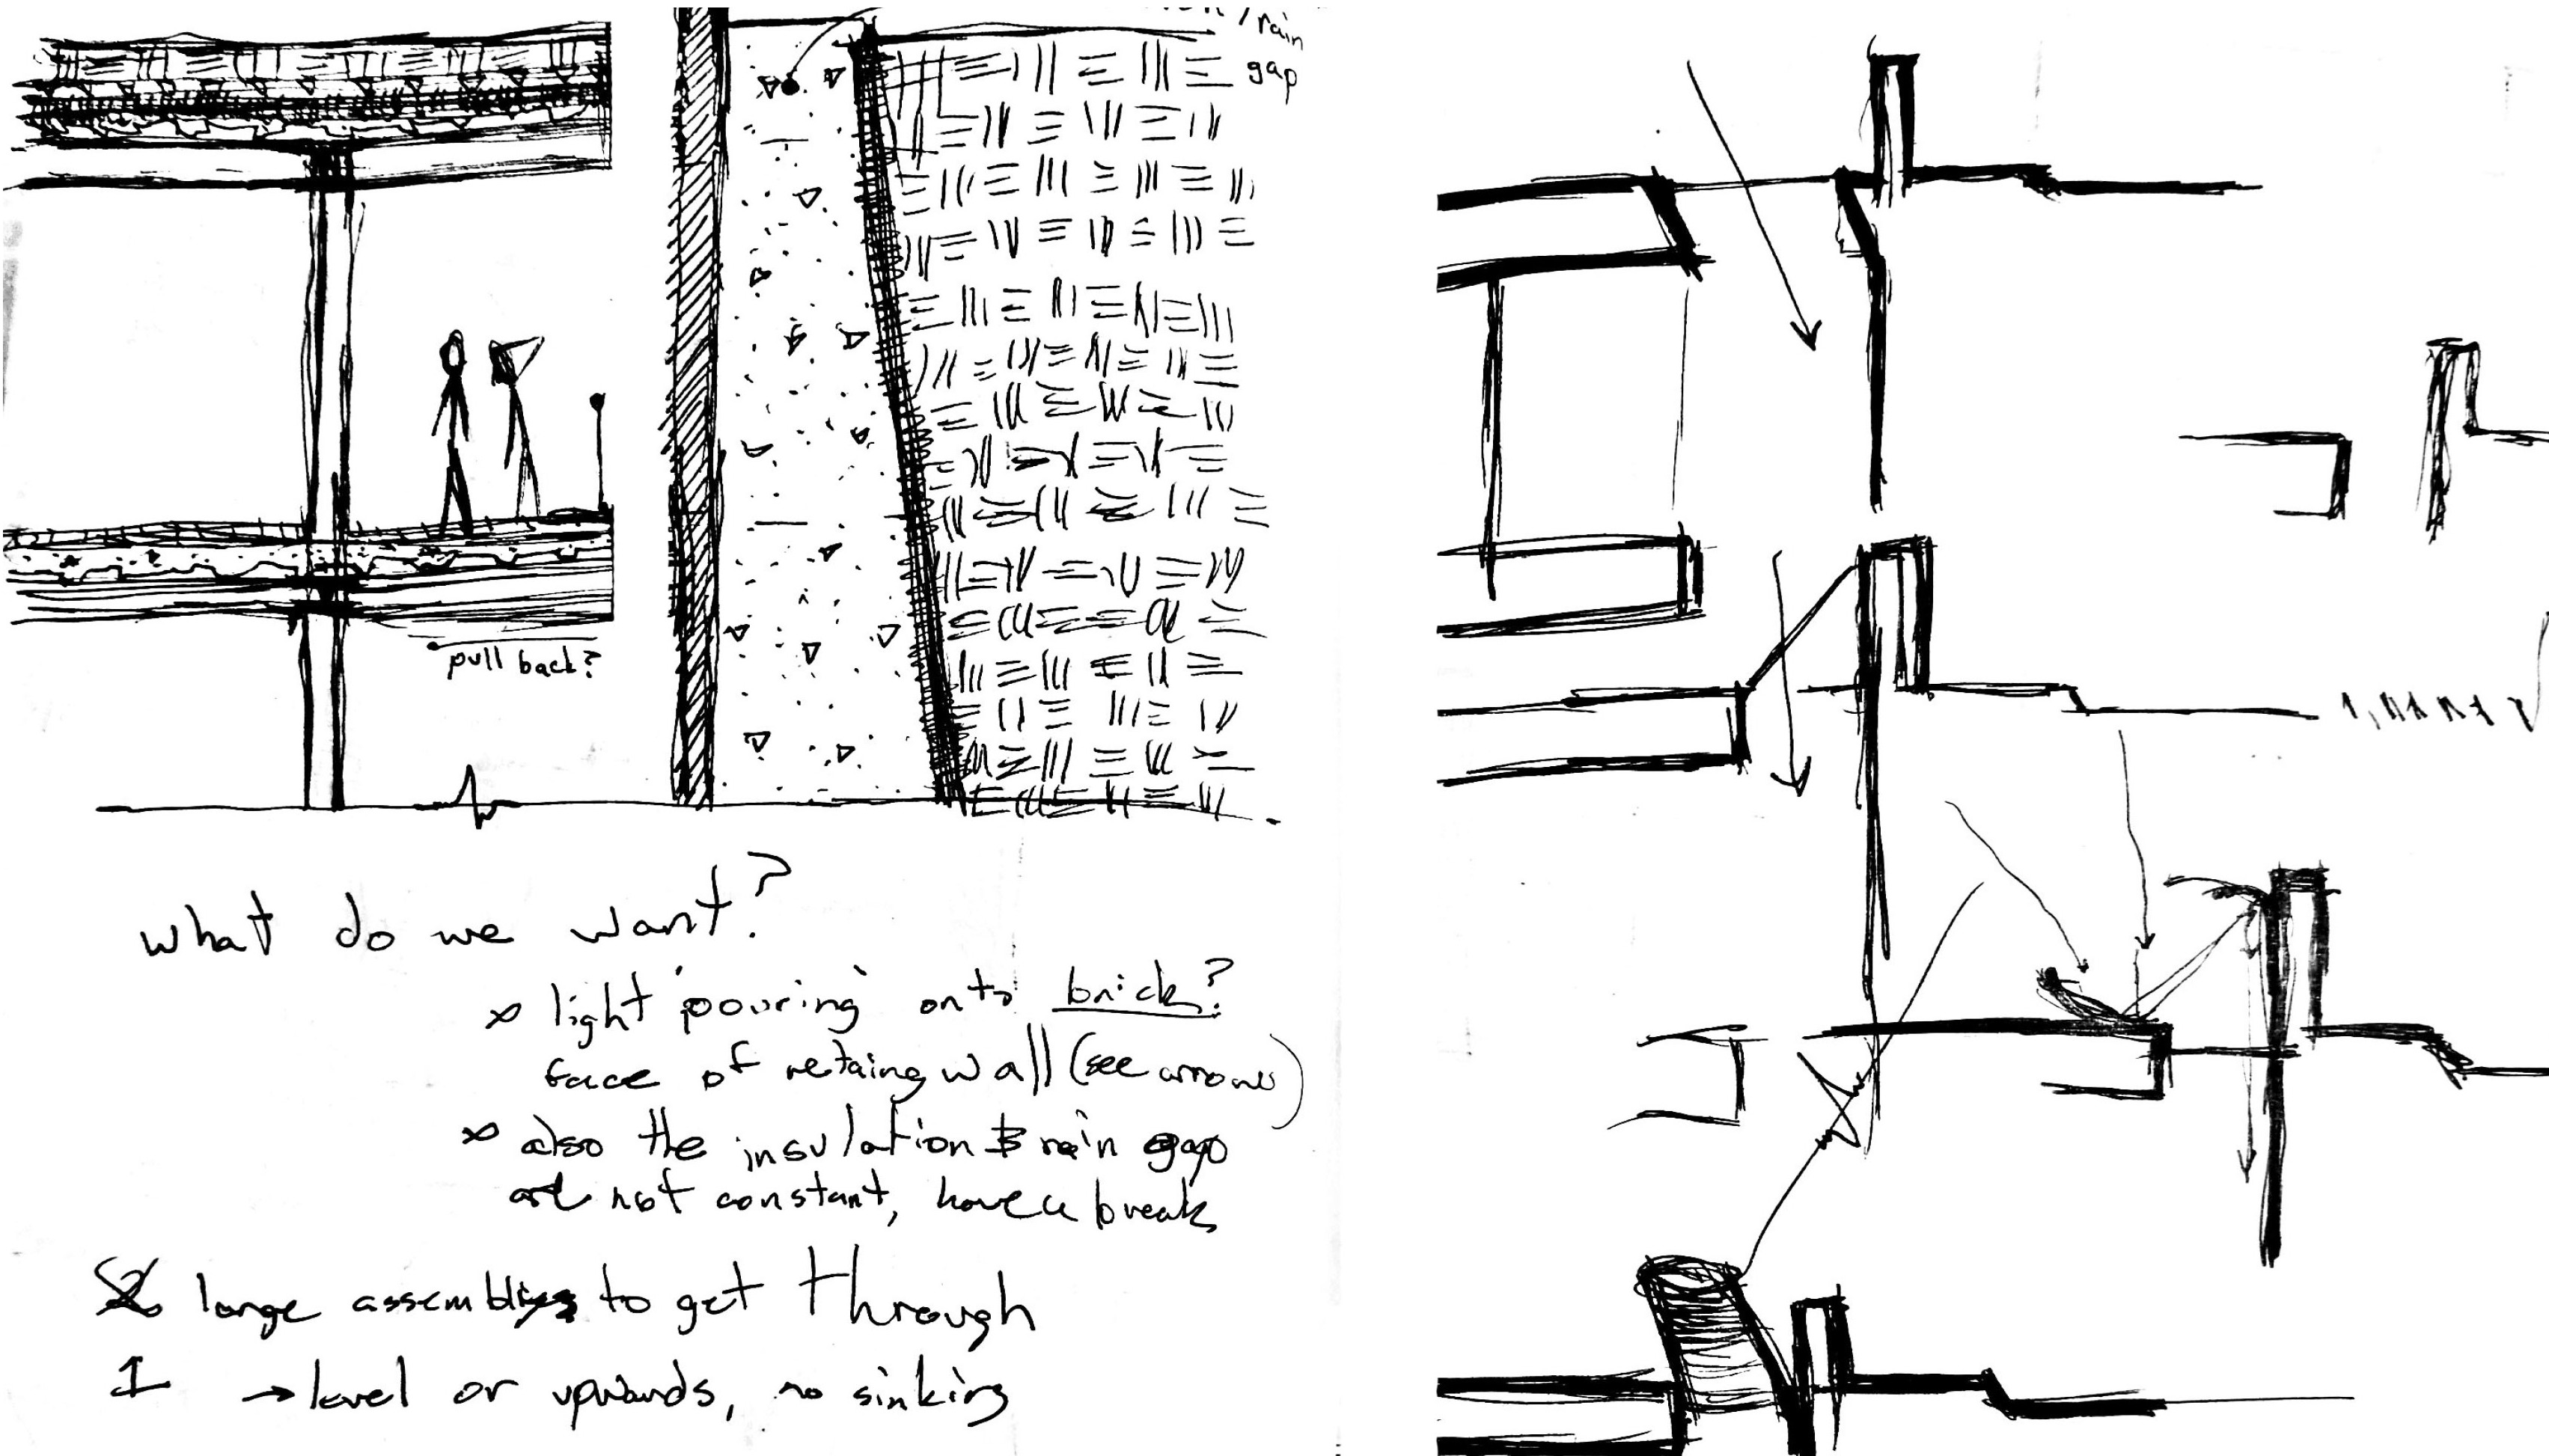 / rain
gap
pull back?
what do we want?
light 'pouring' onto brick?
face of retaing wall (see arrows)
also the insulation & rain gap
are not constant, have a break
2 large assemblies to get through
1 → level or upwards, no sinking